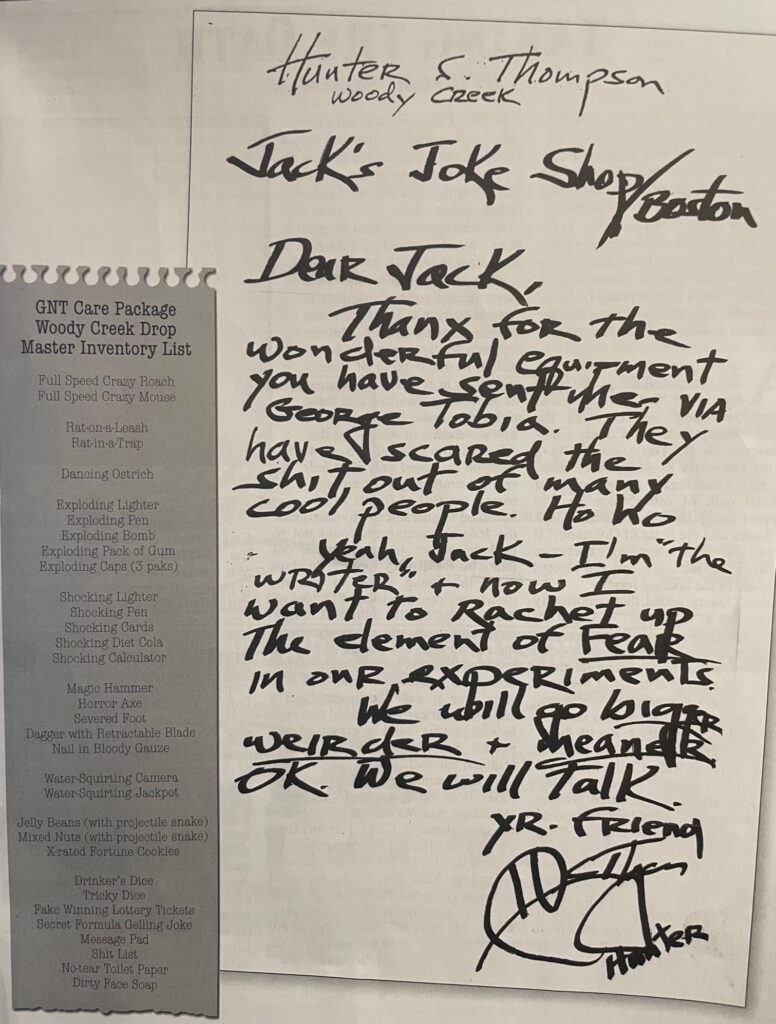 Hunter S. Thompson
Woody Creek
Jack's Joke Shop/Boston
Dear Jack,
Thanx for the
wonderful equipment
you have sent me VIA
George Tobia. They
have scared the
shit out of many
cool people. Ho Ho
Yeah, Jack – I'm "the
writer" + now I
want to Rachet up
The element of Fear
in our experiments.
We will go bigger
weirder + meaner
OK. We will Talk.
YR. Friend
Hunter
GNT Care Package
Woody Creek Drop
Master Inventory List
Full Speed Crazy Roach
Full Speed Crazy Mouse
Rat-on-a-Leash
Rat-in-a-Trap
Dancing Ostrich
Exploding Lighter
Exploding Pen
Exploding Bomb
Exploding Pack of Gum
Exploding Caps (3 paks)
Shocking Lighter
Shocking Pen
Shocking Cards
Shocking Diet Cola
Shocking Calculator
Magic Hammer
Horror Axe
Severed Foot
Dagger with Retractable Blade
Nail in Bloody Gauze
Water-Squirting Camera
Water-Squirting Jackpot
Jelly Beans (with projectile snake)
Mixed Nuts (with projectile snake)
X-rated Fortune Cookies
Drinker's Dice
Tricky Dice
Fake Winning Lottery Tickets
Secret Formula Gelling Joke
Message Pad
Shit List
No-tear Toilet Paper
Dirty Face Soap